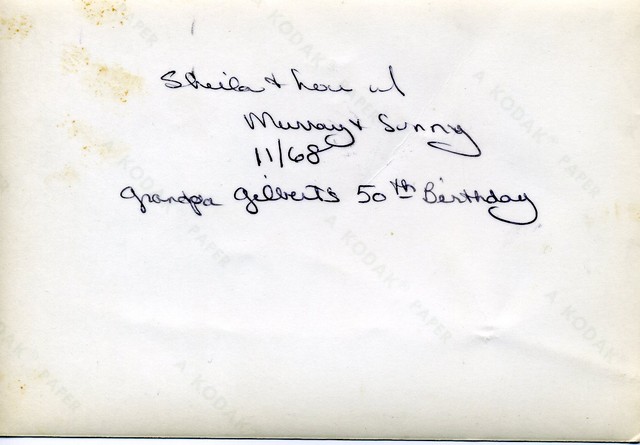 Sheila + Lou w/
Murray + Sunny
11/68
Grandpa Gilberts 50th Birthday
A KODAK PAPER
A KODAK PAPER
A KODAK PAPER
A KODAK PAPER
A KODAK PAPER
A KODAK